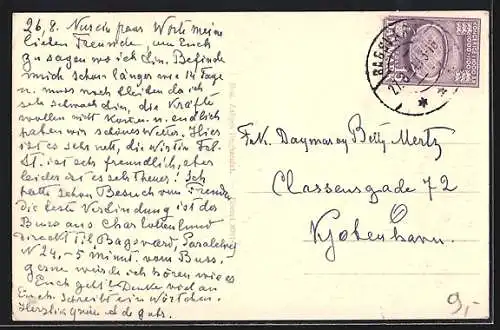 26,8. Nur ein paar Worte meine
lieben Freunde, um Euch
zu sagen wo ich bin. Befinde
mich schon länger wie 14 Tage
u. muss noch bleiben da ich
sehr schwach bin, die Kräfte
wollen nicht kommen u. endlich
haben wir schönes Wetter. Hier
ist es sehr nett, die Wirtin Frl.
St. ist sehr freundlich, aber
leider ist es sehr teuer! Ich
hatte schon Besuch von Freunden
Die beste Verbindung ist der
Buss aus Charlottenlund
Direkt til Bagsværd, Paralelvej
N 24, - 5 minut. vom Buss.
gerne würde ich hören wie es
Euch geht! Denke viel an
Euch. Schreibt ein Wörtchen.
Herzlich
BAGSVÆRD
Frk. Daymarsy Betty Mertz
Classensgade 72
Kjøbenhavn.
9,-